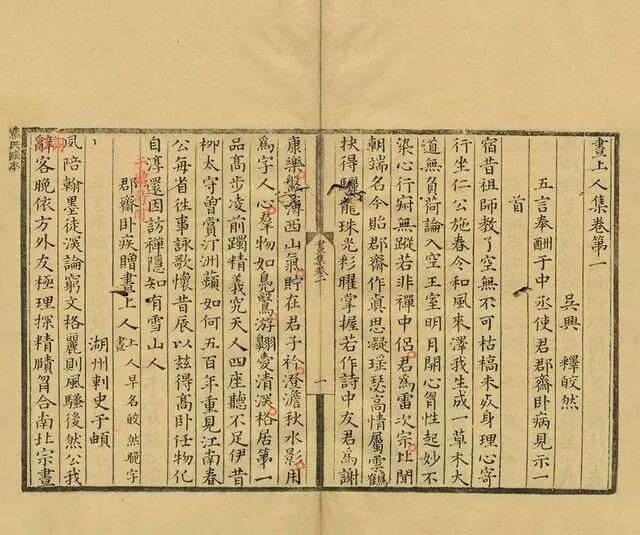 晝上人集卷第一
吳興 釋皎然
五言奉酬于中丞使君郡齋卧病見示一
首
宿昔祖師教了空無不可枯槁未疢身理心寄
行坐仁公施春令和風來澤我生成一草木大
道無負荷論入空王室明月開心胷性起妙不
染心行寂無蹤若非禪中侶君爲雷次宗比聞
朝端名今貽郡齋作真思凝瑤瑟高情屬雲鶴
抉得驪龍珠光彩曜掌握若作詩中友君爲謝
晝集卷一
一
康樂盤薄西山氣貯在君子衿澄澹秋水影用
爲字人心羣物如鳧鷖游翱愛清深格居第一
品高步凌前躅精義究天人四座聽不足伊昔
柳太守曾賞汀洲蘋如何五百年重見江南春
公每省往事詠歌懷昔辰以兹得高卧任物化
自淳還因訪禪隱知有雪山人
郡齋卧疾贈晝上人 上人早名皎然晚字
晝
湖州刺史于頔
夙陪翰墨徒深論窮文格麗則風騷後然公我
辭客晚依方外友極理探精賾胷合南北宗晝